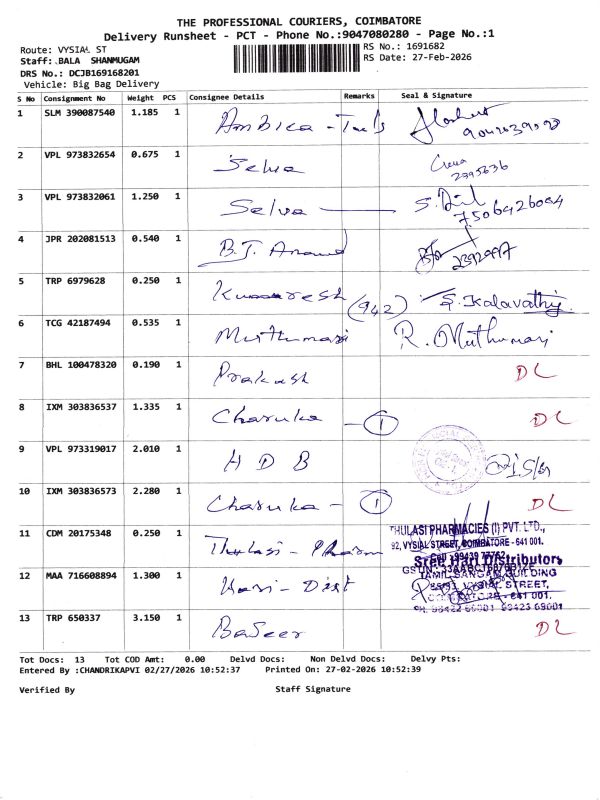 THE PROFESSIONAL COURIERS, COIMBATORE
Delivery Runsheet - PCT - Phone No.:9047080280 - Page No.:1
Route: VYSIAL ST
RS No.: 1691682
Staff: BALA SHANMUGAM
RS Date: 27-Feb-2026
DRS No.: DCJB169168201
Vehicle: Big Bag Delivery
S No Consignment No Weight PCS Consignee Details Remarks Seal & Signature
1 SLM 390087540 1.185 1 Ambica -
2 VPL 973832654 0.675 1 Selva
3 VPL 973832061 1.250 1 Selva 7506426084
4 JPR 202081513 0.540 1 B.T. Anand
5 TRP 6979628 0.250 1 Kumaresh (942) S. Kalavathy
6 TCG 42187494 0.535 1 Muthumari R. Muthumari
7 BHL 100478320 0.190 1 Prakash DL
8 IXM 303836537 1.335 1 Charuka - 1 DL
9 VPL 973319017 2.010 1 H D B
10 IXM 303836573 2.280 1 Charuka - 1 DL
11 CDM 20175348 0.250 1 Thulasi - Pharm
THULASI PHARMACIES (I) PVT. LTD.,
92, VYSIAL STREET, COIMBATORE - 641 001.
Sree Hari Distributors
12 MAA 716608894 1.300 1 Hari - Dist
TAMIL SANGAM BUILDING
VYSIAL STREET,
COIMBATORE - 641 001.
13 TRP 650337 3.150 1 Baseer DL
Tot Docs: 13 Tot COD Amt: 0.00 Delvd Docs: Non Delvd Docs: Delvy Pts:
Entered By :CHANDRIKAPVI 02/27/2026 10:52:37 Printed On: 27-02-2026 10:52:39
Verified By Staff Signature